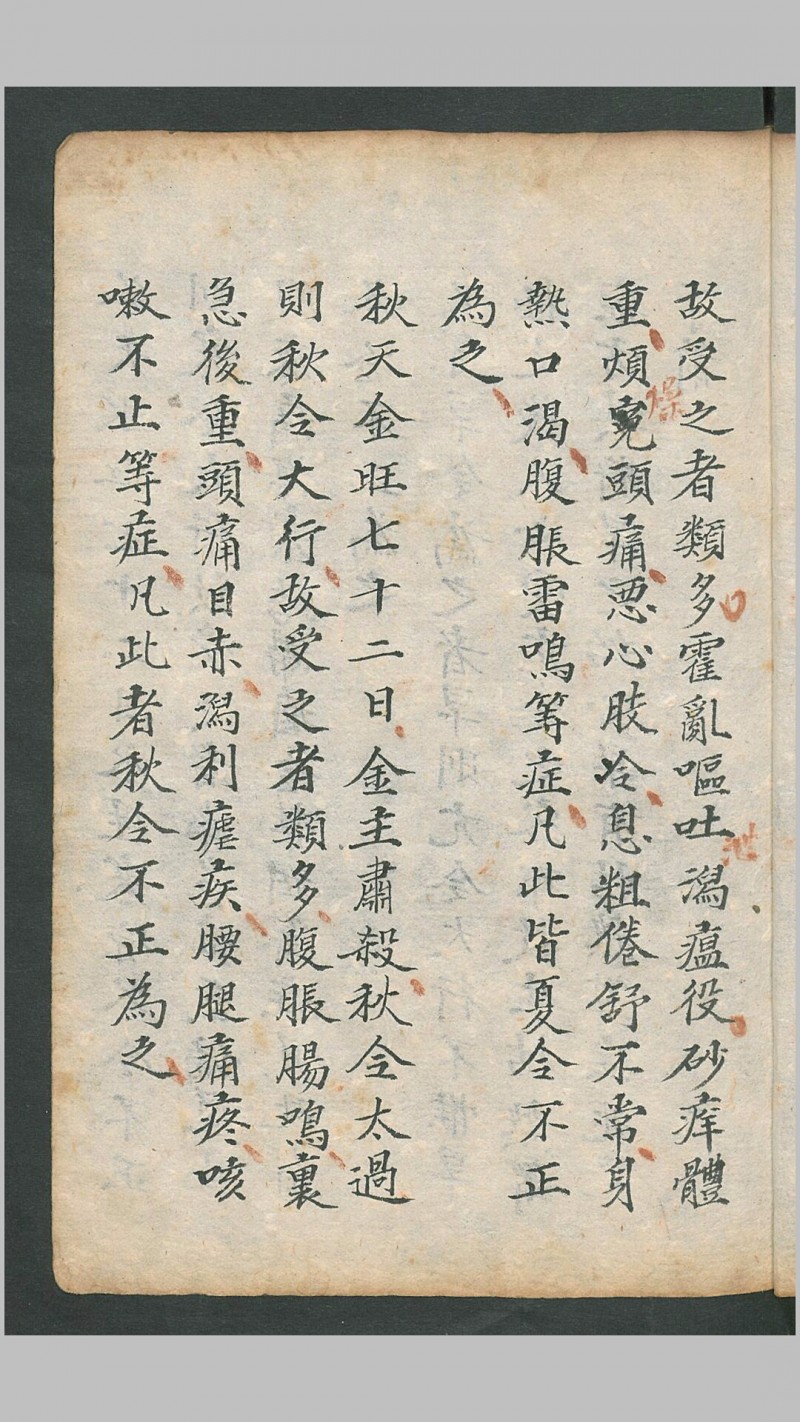 故受之者類多霍亂嘔吐瀉瘟役砂痒體
重煩寃頭痛悪心肢冷息粗倦舒不常身
熱口渴腹脹雷鳴等症凡此皆夏令不正
為之
秋天金旺七十二日金主肅殺秋令太過
則秋令大行故受之者類多腹脹腸鳴裏
急後重頭痛目赤瀉利瘧疾腰腿痛疼咳
嗽不止等症凡此者秋令不正為之